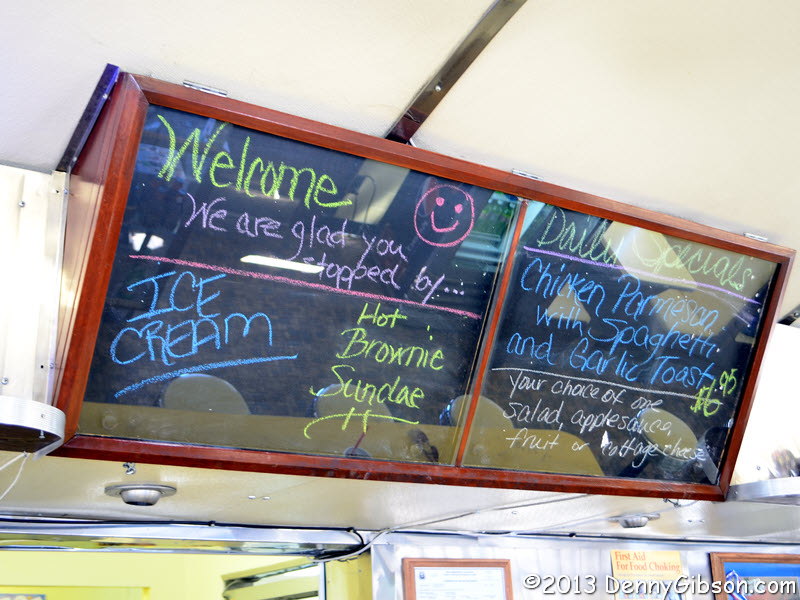 Welcome
We are glad you
stopped by...
ICE
CREAM
Hot
Brownie
Sundae
Daily Specials
Chicken Parmesan
with Spaghetti
and Garlic Toast
$6.95
your choice of one
salad, applesauce,
fruit or cottage cheese
First Aid
For Food Choking
©2013 DennyGibson.com